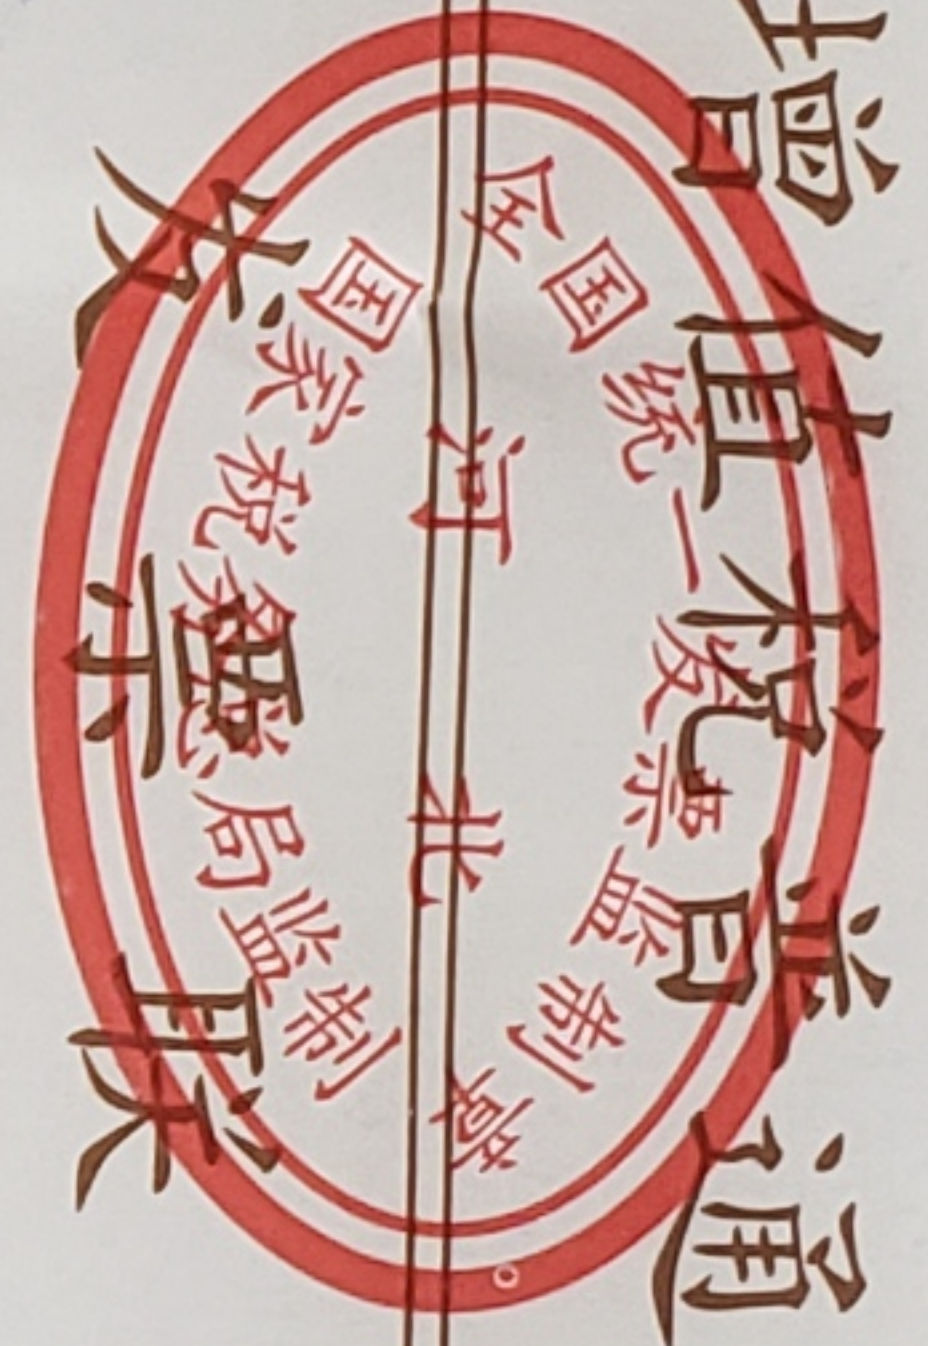 增值税普通
全国统一发票监制章
河北
国家税务总局监制
发票联